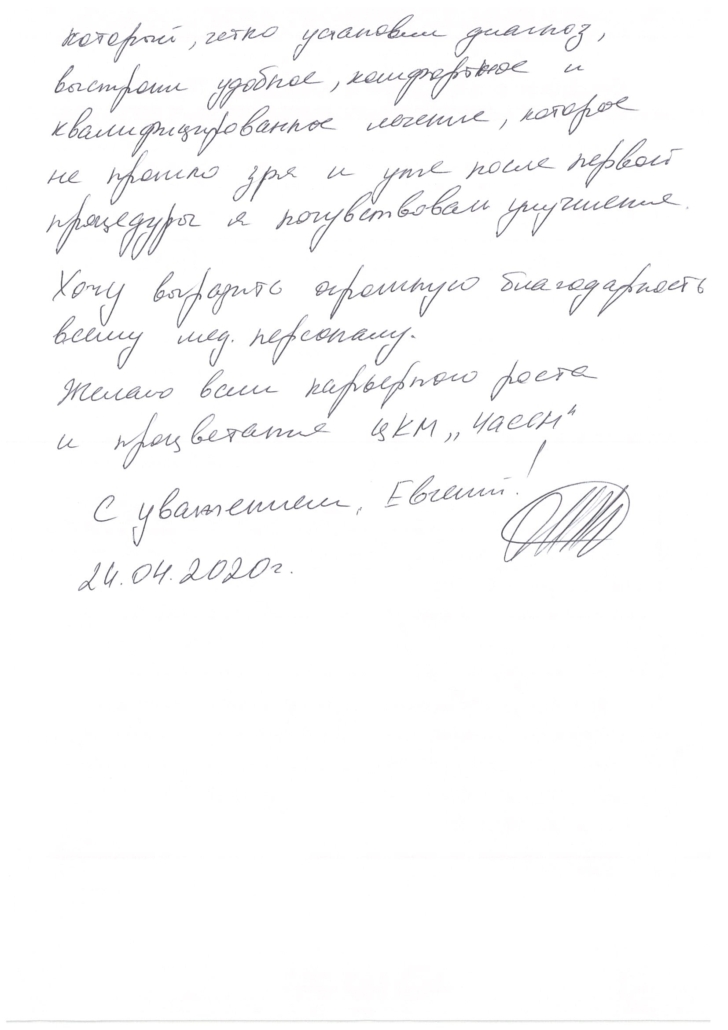 который, четко установил диагноз,
выстроил удобное, комфортное и
квалифицированное лечение, которое
не прошло зря и уже после первой
процедуры я почувствовал улучшение.
Хочу выразить огромную благодарность
всему мед. персоналу.
Желаю всем карьерного роста
и процветания ЦКМ „Чаесн“
С уважением, Евгений!
24.04.2020г.